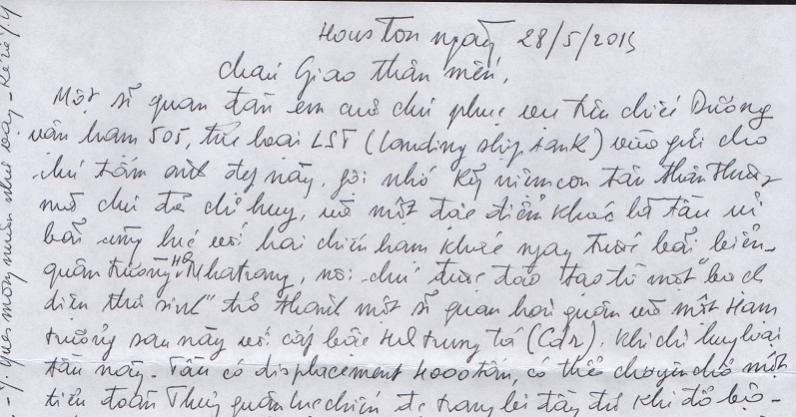 Houston ngày 28/5/2015
cháu Giao thân mến,
Một sĩ quan đàn em cuả chú phục vụ trên chiếc Dương
vận hạm 505, thuộc loại LST (Landing ship tank) vừa gửi cho
chú tấm ảnh đẹp này, gợi nhớ kỷ niệm con tàu thân thương
mà chú đã chỉ huy, và một đặc điểm khác là tàu ủi
bãi cùng lúc với hai chiến hạm khác ngay trước bãi biển
quân trường HQ Nhatrang, nơi chú được đào tạo từ một "bạch
diện thư sinh" trở thành một sĩ quan hải quân và một Hạm
trưởng sau này với cấp bậc HQ trung tá (Cdr), khi chỉ huy loại
tàu này. Tàu có displacement 4000 tấn, có thể chuyên chở một
tiểu đoàn Thuỷ quân lục chiến đc trang bị đầy đủ khi đổ bộ -
như vậy - Kể từ J.Y